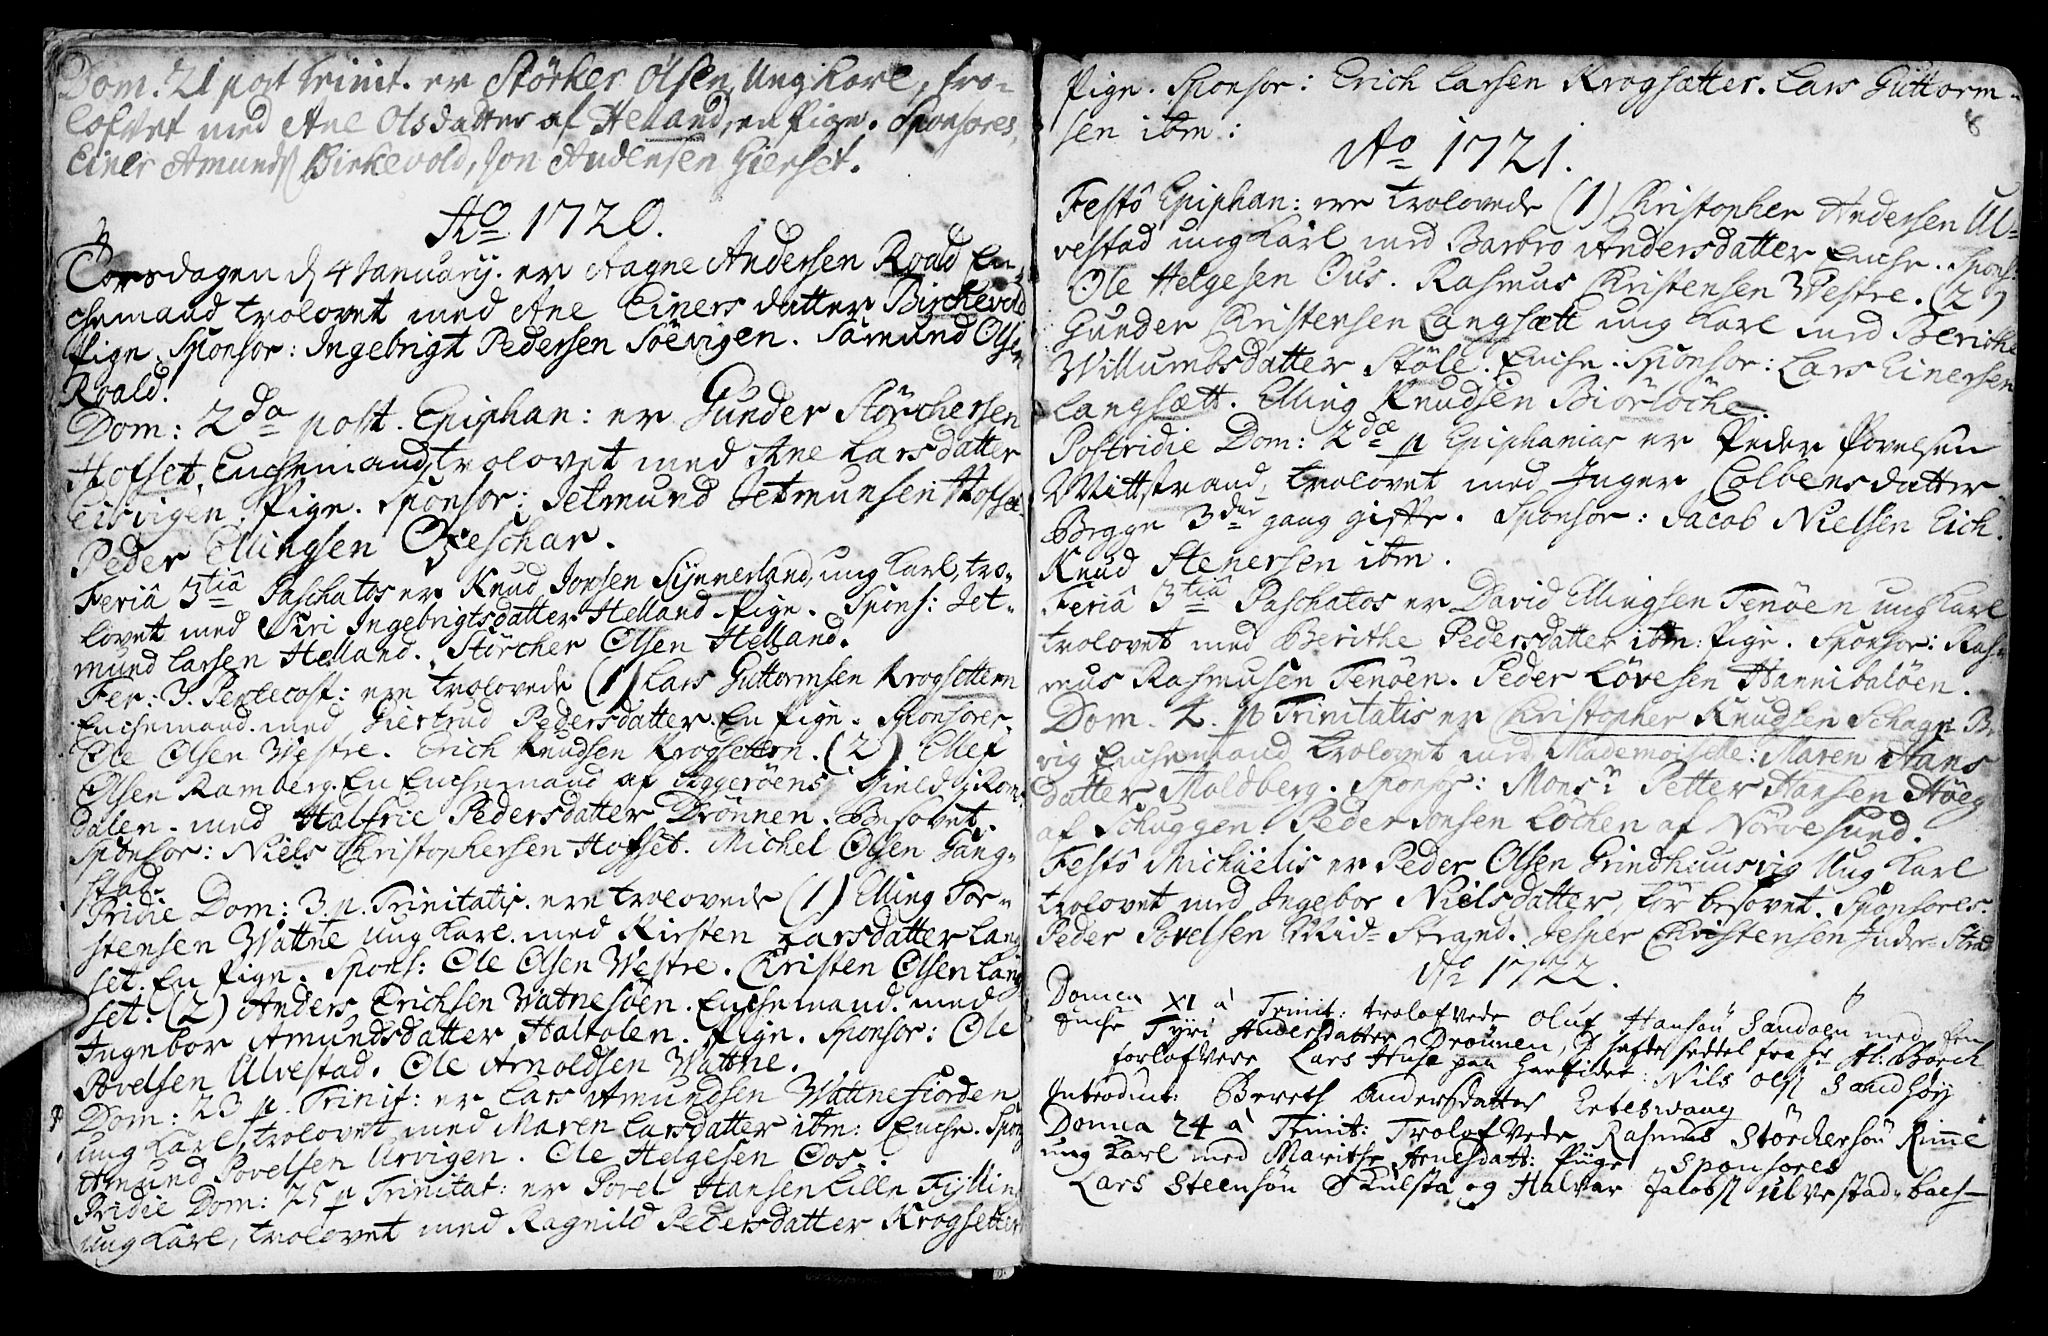 Dom. 21 post trinit. er Störker Olsen Ung Karl, tro-
lofvet med Ane Olsdatter af Helland, en Pige. Sponsores,
Einer Amunds. Birkevold, Jon Andersen Gierset.
Ao 1720.
Torsdagen d 4 January. er Aagne Andersen Roald En-
chemand trolovet med Ane Einersdatter Birchevold
Pige. Sponsor: Ingebrigt Pedersen Söevigen. Samund Olsen
Roald.
Dom: 2da post. Epiphan: er Gunder Störchersen
Hofset, Enchemand, trolovet med Ane Larsdatter
Eisvigen, Pige. Sponsor: Jetmund Jetmunsen Hofsæ-
Peder Ellingsen Oxeschar.
Feriâ 3tiâ Paschatos er Knud Jonsen Synnerland, ung Karl, tro-
lovet med Siri Ingebrigtsdatter Helland Pige. Spons: Jet-
mund Larsen Helland. Störcher Olsen Helland.
Fer: 3. Pentecost: ere trolovede (1) Lars Guttormsen Krogsettern
Enchemand. med Giertrud Pedersdatter. En Pige. Sponsores.
Ole Olsen Westre. Erich Knudsen Krogsettern. (2) Ellef
Olsen Ramberg. En Enchemand af Aggeröens Gield i Roms-
dalen. med Halfrie Pedersdatter Drönnen. Besovet.
Sponsor: Niels Christophersen Hofset. Michel Olsen Gang-
stad.
Pridie Dom: 3 p. Trinitatis. ere trolovede (1) Elling Tor-
stensen Wattne ung Karl. med Kirsten Larsdatter Lang
set. En Pige. Spons: Ole Olsen Westre. Christen Olsen Lang
set. (2) Anders Erichsen Watnesöen. Enchemand. med
Ingebor Amundsdatter Haltolen. Pige. Sponsor: Ole
Povelsen Ulvestad. Ole Arnoldsen Wattne.
Dom: 23 p. Trinit: er Lars Amundsen Wattnefiorden
ung Karl, trolovet med Maren Larsdatter ibm: Enche. Spons
Amund Povelsen Urvigen. Ole Helgesen Oos.
Pridie Dom: 25 p Trinitat: er Povel Hansen Lille Fylling
ung Karl, trolovet med Ragnild Pedersdatter Krogsetter
Pige. Sponsor: Erich Larsen Krogsætter. Lars Guttorm-
sen ibm:
8
Ao 1721.
Festô Epiphan: ere trolovede (1) Christopher Andersen Ul-
vestad ung Karl med Barbro Andersdatter Enche. Spons:
Ole Helgesen Ous. Rasmus Christensen Westre. (2)
Gunder Christensen Langsætt ung Karl med Berithe
Willumbsdatter Stöle. Enche. Sponsor: Lars Einersen
Langsætt. Elling Knudsen Biörlöche.
Postridie Dom: 2dæ p Epiphanias er Peder Povelsen
Mittstrand, trolovet med Inger Colbensdatter
Begge 3die gang gifte. Sponsor: Jacob Nielsen Eich.
Knud Stenersen ibm.
Feriâ 3tiâ Paschatos er David Ellingsen Tenöen ung Karl
trolovet med Berithe Pedersdatter ibm: Pige. Sponsor: Ras-
mus Rasmusen Tenöen. Peder Lövesen Hannibalöen.
Dom. 4. p Trinitatis er Christopher Knudsen Schage B-
vig Enchemand trolovet med Mademoiselle: Maren Hans
datter Moldberg. Sponsor: Monsr Petter Hansen Höeg
af Schuggen. Peder Jonsen Löchen af Nörvesund.
Festô Michäelis er Peder Olsen Grindhuusvig Ung Karl
trolovet med Ingebor Nielsdatter, för besovet. Sponsores.
Peder Povelsen Mid-Strand. Jesper Christensen Indre-Strd
Ao 1722.
Domca XI à Trinit: trolofvede Oluf Hansön Sandöen med den
Enche Tyri Andersdatter Drönnen, hafde seddel fra Hr Al: Borch
forlofvere Lars Huse paa Harhiden: Nils Ols. Sandhöy
Introduct: Bereth Andersdatter Erteswaag
Domca 24 à Trinit: Trolofvede Rasmus Störchersön Rimme
ung Karl med Marithe Arnesdatt: Piige Sponsores
Lars Steensön Skulsta og Halvar Jakobs. Ulvestad-bach-